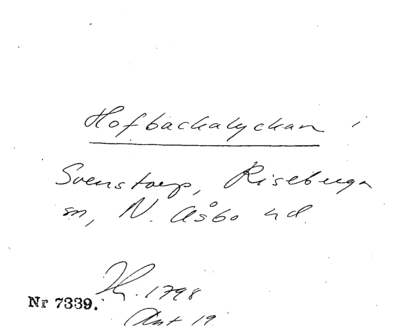 Hofbackalyckan i
Svenstorp, Riseberga
sn, N. Åsbo hd.
1798
Nr 7339.
Akt 19